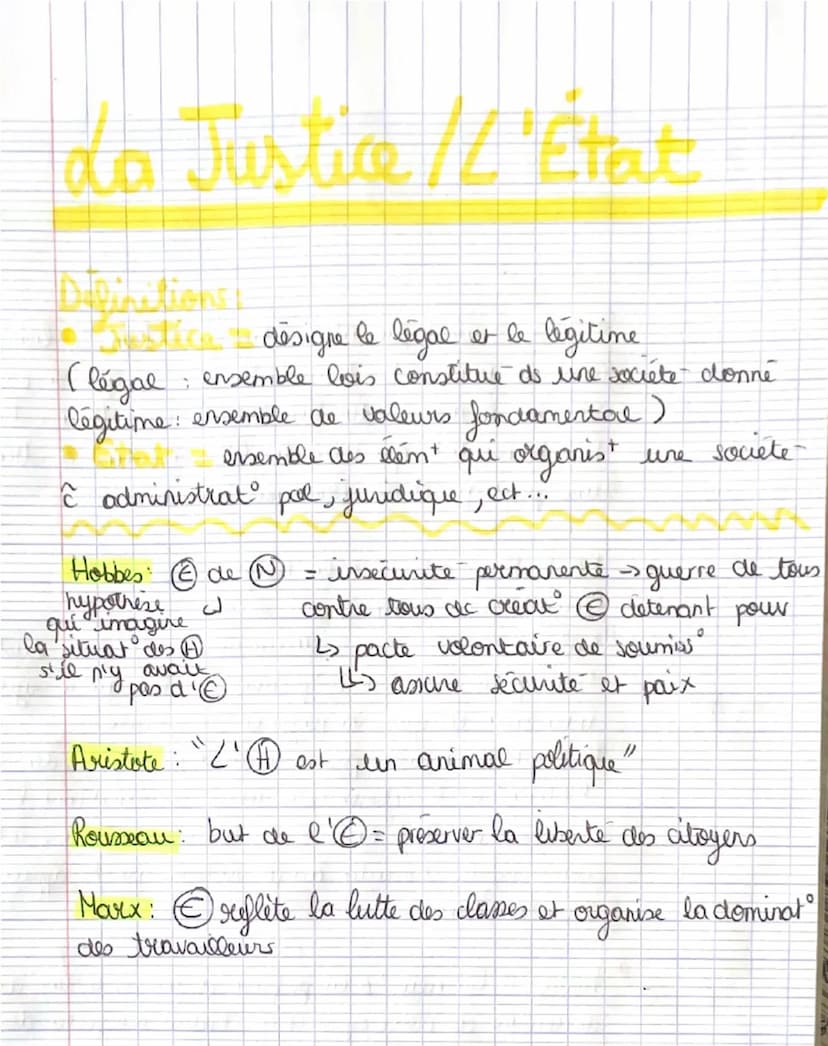 La Justice / L'État
Définitions :
• Justice = désigne le légal et le légitime
( légal : ensemble lois constitué ds une société donné
légitime : ensemble de valeurs fondamental )
• État = ensemble des élémt qui organist une société
ĉ administrat° pol, juridique, ect...
Hobbes : Ⓔ de Ⓝ = insécurité permanente → guerre de tous
hypothèse contre tous dc créat° Ⓔ détenant pouv
qui imagine
la situat° des Ⓗ ↳ pacte volontaire de soumiss°
s'il n'y avait
pas d'Ⓔ ↳ assure sécurité et paix
Aristote : "L'Ⓗ est un animal politique"
Rousseau : but de l'Ⓔ = préserver la liberté des citoyens
Marx : Ⓔ reflète la lutte des classes et organise la dominat°
des travailleurs